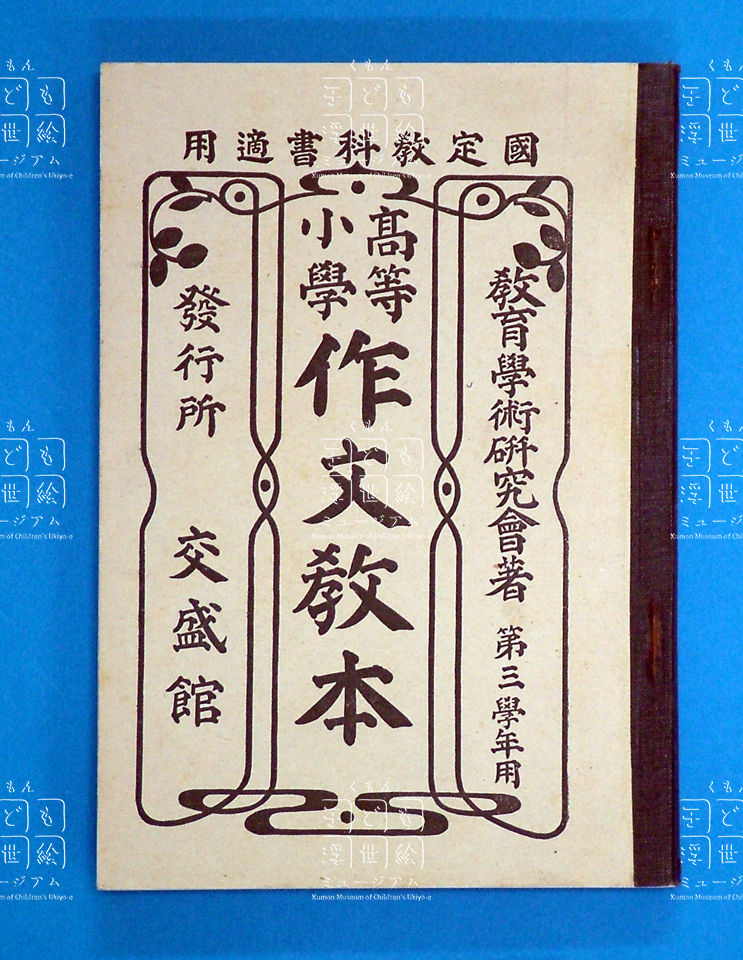 國定敎科書適用
敎育學術硏究會著 第三學年用
高等
小學
作文敎本
發行所 交盛館
くもん
子ども
浮世絵
ミュージアム
Kumon Museum of Children's Ukiyo-e